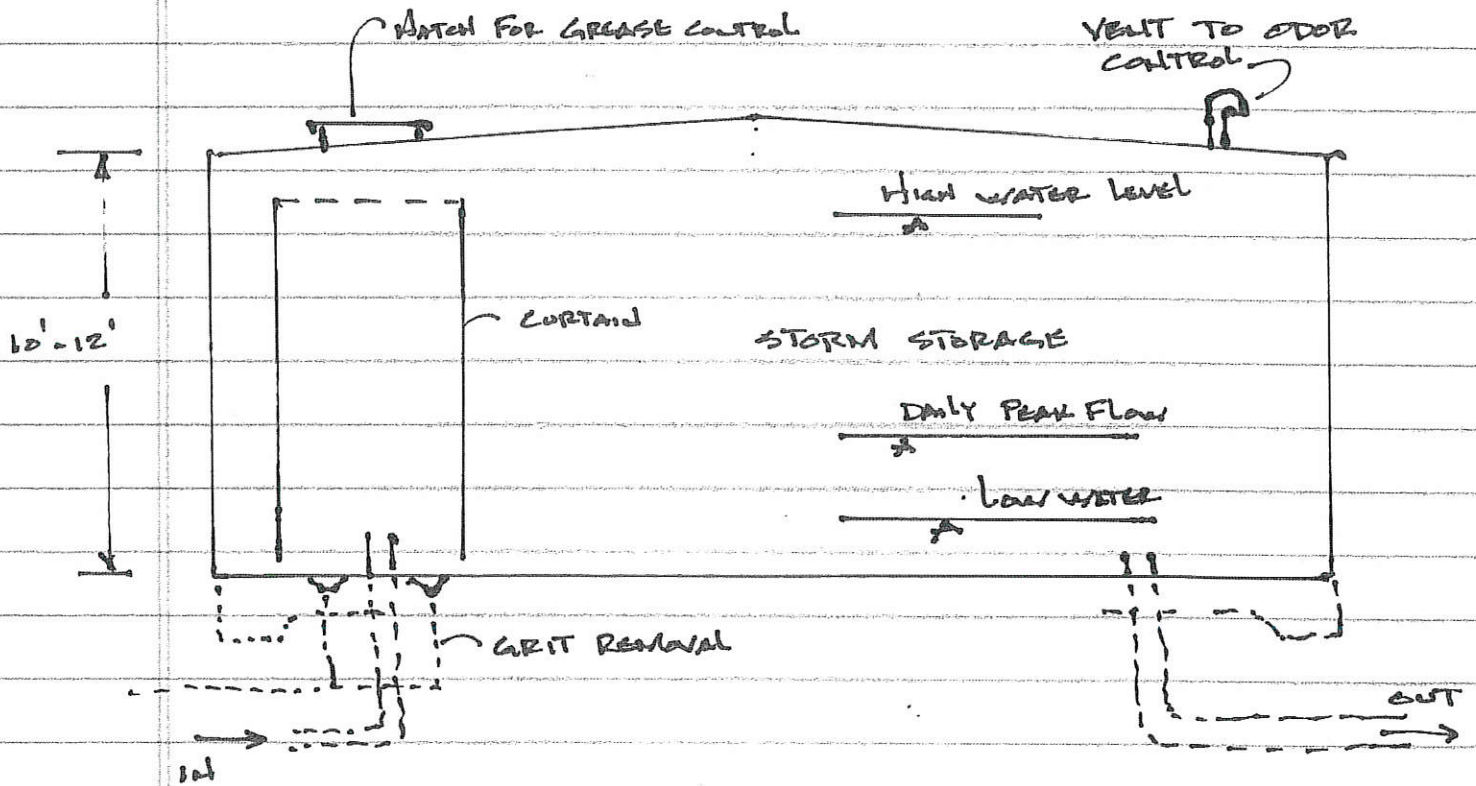 HATCH FOR GREASE CONTROL
VENT TO ODOR
CONTROL
HIGH WATER LEVEL
CURTAIN
10'-12'
STORM STORAGE
DAILY PEAK FLOW
LOW WATER
GRIT REMOVAL
OUT
IN